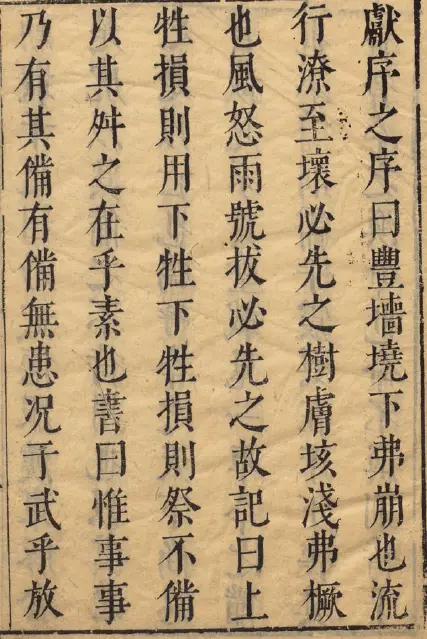 獻序之序曰豐墻墝下弗崩也流
行潦至壞必先之樹膚垓淺弗橛
也風怒雨號拔必先之故記曰上
牲損則用下牲下牲損則祭不備
以其舛之在乎素也書曰惟事事
乃有其備有備無患况于武乎放